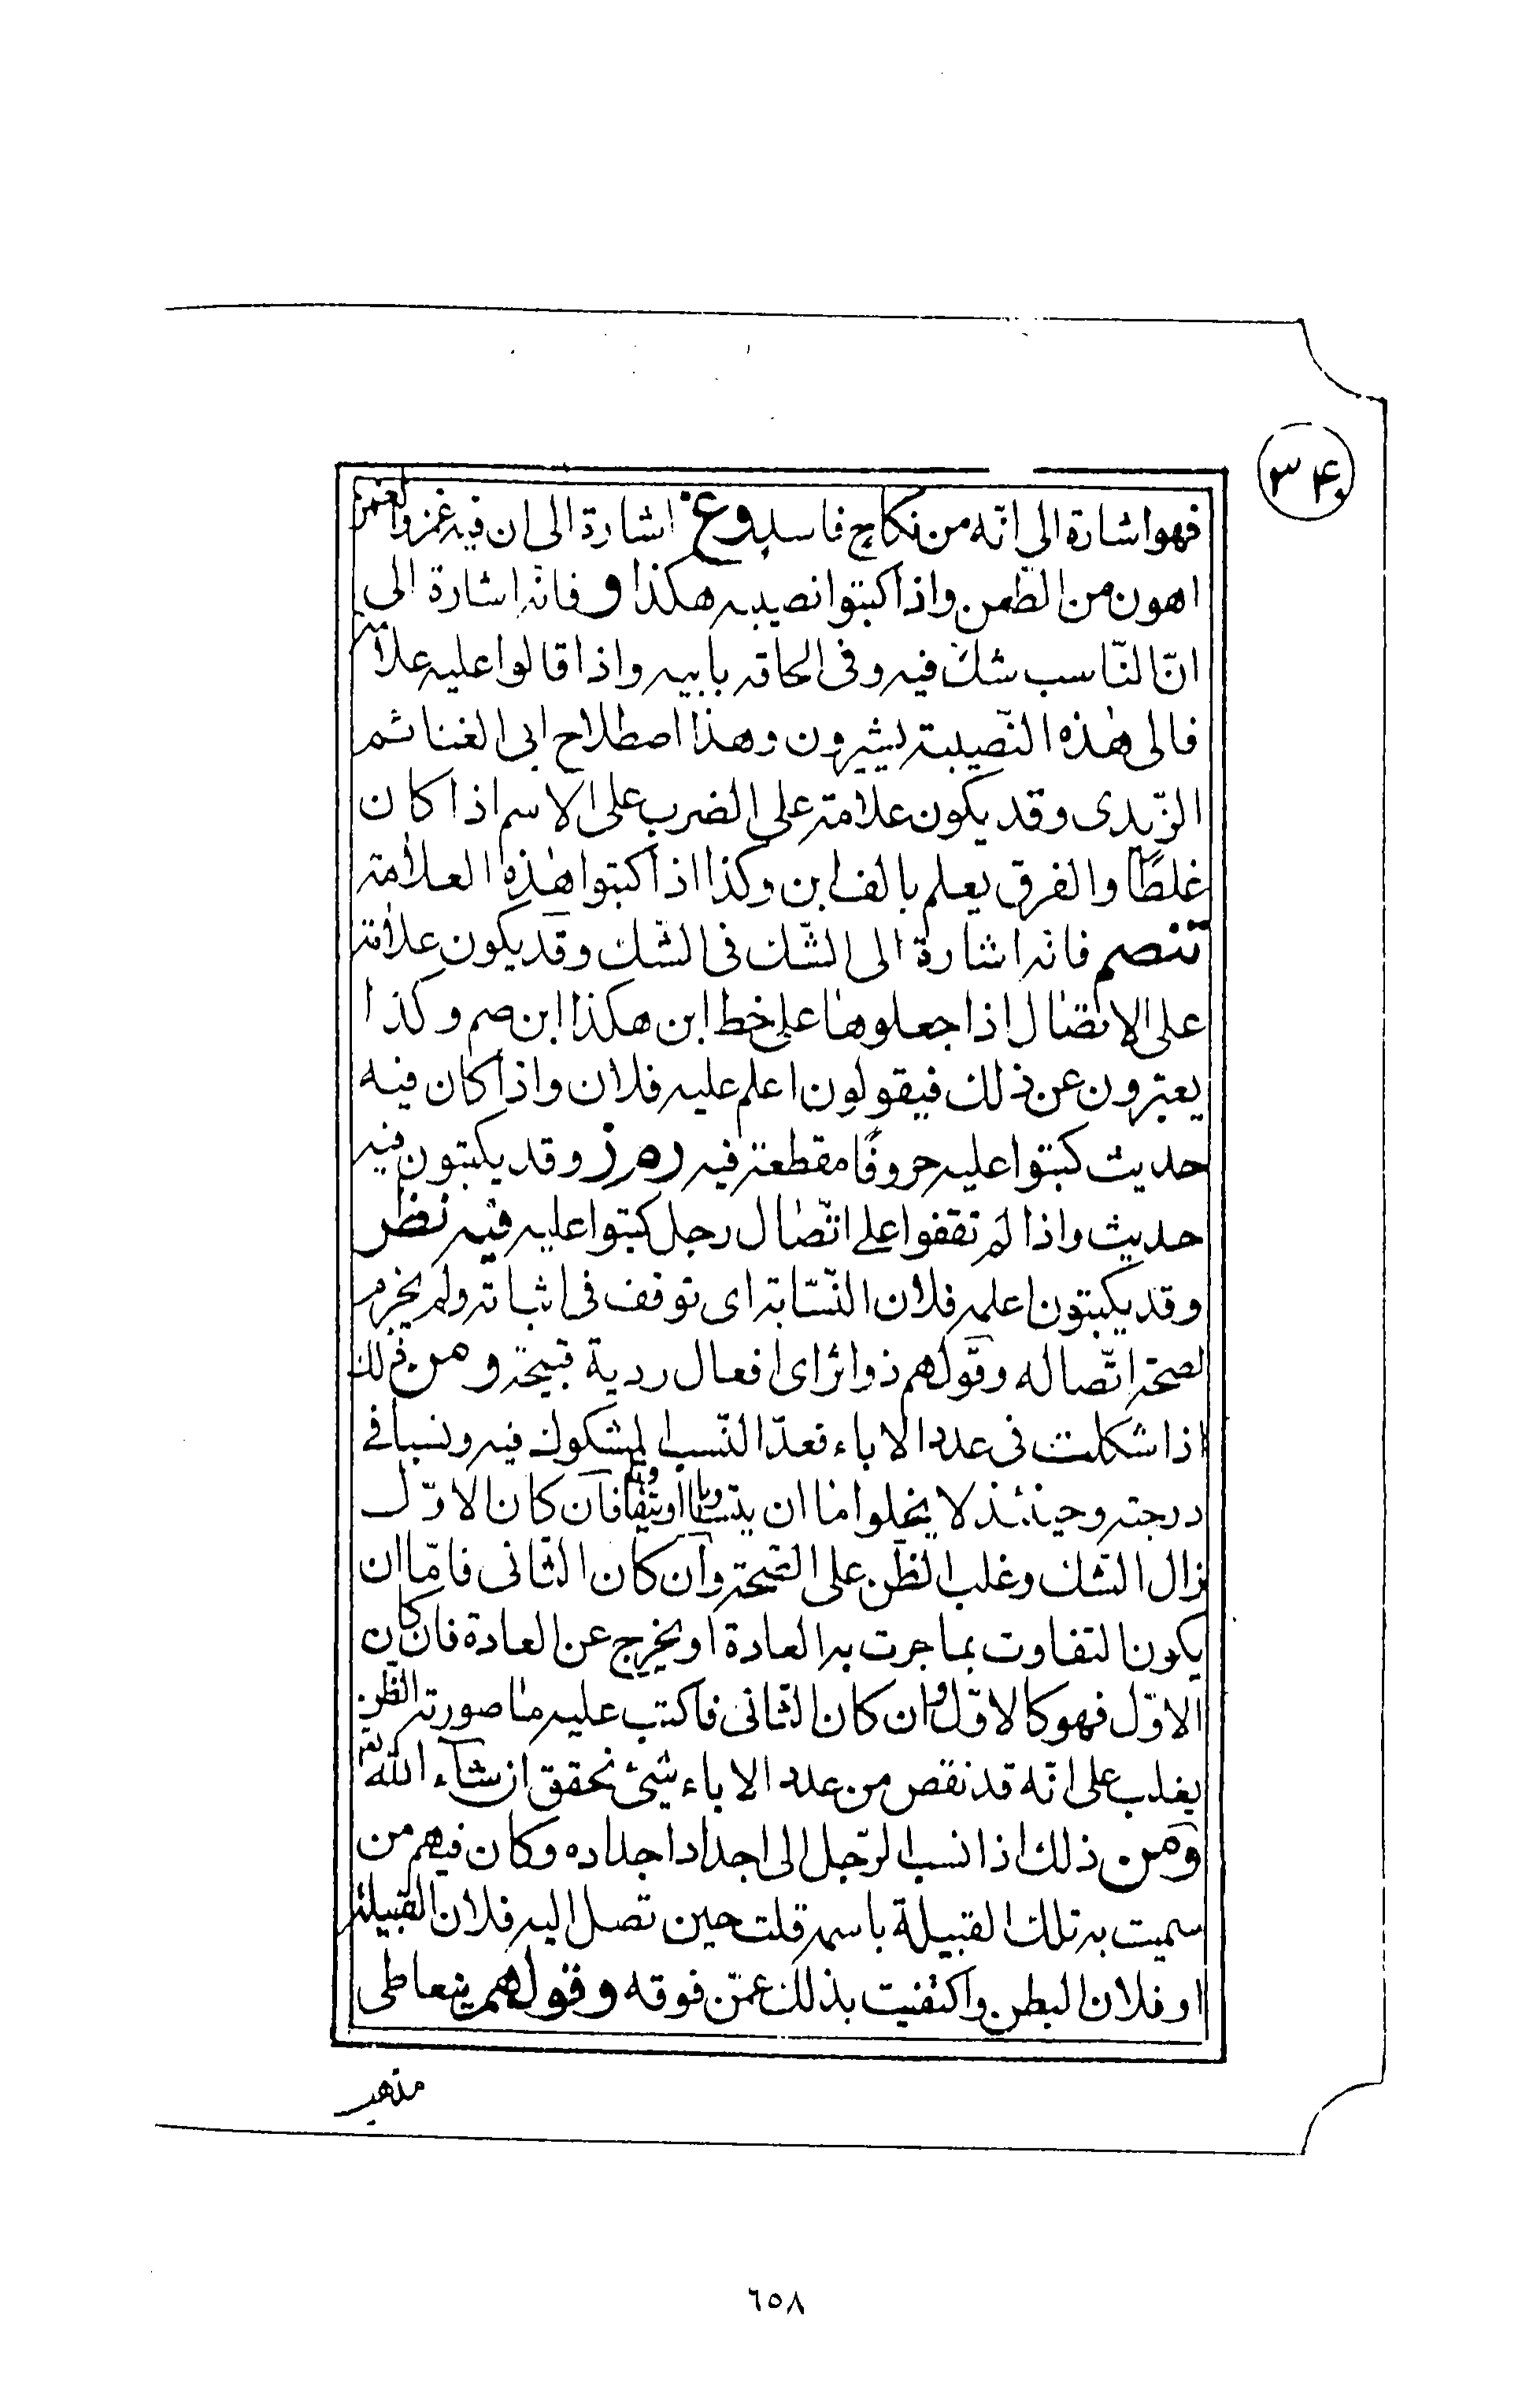 ٣۴٠
فهو اشارة الى انّه من نكاح فاسد وغ اشارة الى ان فيه غمز والغمز
اهون من الطعن واذا كتبوا نصيبه هكذا و فانه اشارة الى
انّ النّاسب شك فيه وفى الحاقه بابيه واذا قالوا عليه علامة
فالى هذه النّصيبة يشيرون وهذا اصطلاح ابى الغنائم
الزّيدى وقد يكون علامة على الضرب على الاسم اذا كان
غلطًا والفرق يعلم بالف ابن وكذا اذا كتبوا هذه العلامة
تنصم فانه اشارة الى الشّك فى الشّك وقد يكون علامة
على الاتصال اذا جعلوها على خط ابن هكذا ابن صم وكذا
يعبّرون عن ذلك فيقولون اعلم عليه فلان واذا كان فيه
حديث كتبوا عليه حروفًا مقطعة فيه ر م ز وقد يكتبون فيه
حديث واذا لم تقفوا على اتّصال رجل كتبوا عليه فيه نظر
وقد يكتبون اعلمه فلان النّسّابة اى توقف فى اثباته ولم يجزم
لصحة اتّصاله وقولهم ذو اثر اى افعال ردية قبيحة ومن ذلك
اذا شكلت فى عدد الاباء فعدّ النّسب المشكوك فيه ونسبا فى
درجته وحينئذ لا يخلوا امّا ان يتساويا او يتفاوتا فان كان الاوّل
زال الشّك وغلب الظن على الصّحة وان كان الثّانى فامّا ان
يكون التفاوت بما جرت به العادة او يخرج عن العادة فان كان
الاوّل فهو كالاوّل وان كان الثّانى فاكتب عليه ما صورته الظن
يغلب على انّه قد نقص من عدد الاباء شئ نحقق ان شآء الله تعالى
ومن ذلك اذا نسب الرّجل الى اجداد اجداده وكان فيهم من
سميت به تلك القبيلة باسمه قلت حين تصل اليه فلان القبيلة
او فلان البطن واكتفيت بذلك عمّن فوقه وقولهم يتعاطى
مذهب
٦٥٨